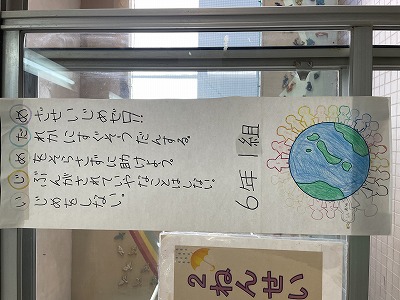 いじめをしない。
じぶんがされていやなことはしない。
めをそらさずに助けよう。
だれかにすぐそうだんする。
めざせいじめゼロ!!
6年1組
2ねんせい